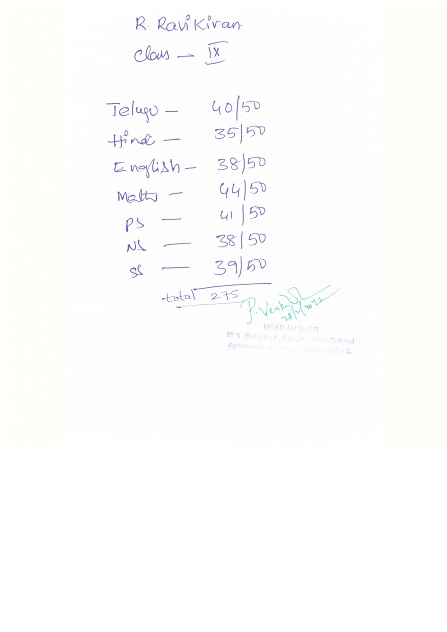 R. Ravi Kiran
Class — IX
Telugu — 40/50
Hindi — 35/50
English — 38/50
Maths — 44/50
PS — 41/50
NS — 38/50
SS — 39/50
total 275
P. Venk
HEAD MASTER
High School